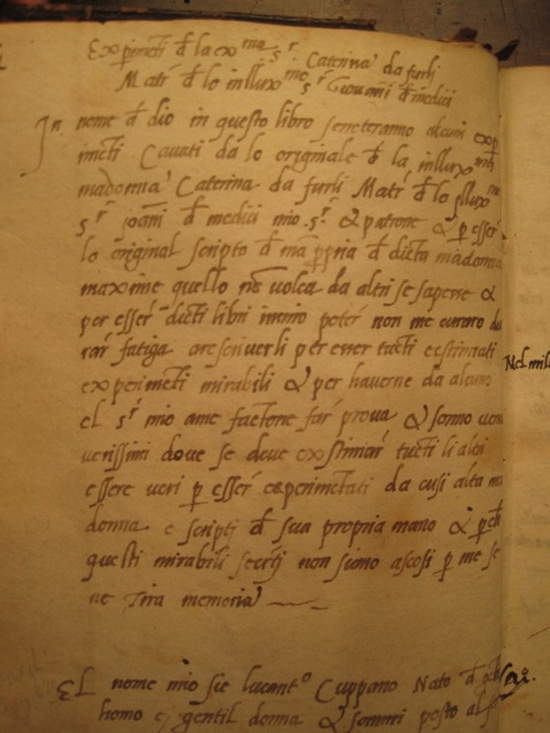 Experimēti đ la ex^ma s^r Caterina da furlj
Matr̄ đ lo inllux^mo s^r Giouāni đ medici
In nome đ dio in questo libro se noteranno alcuni exp
imēti Cauati da lo originale đ la inllux^ma
madonna Caterina da furli Matr̄ đ lo Illux^mo
s^r ioāni đ medici mio s^r & patrone & p esser
lo original scripto đ mā ppria đ dicta madonna
maxime quello nō uolea da altri se sapere &
per esser dicti libri in mio poter non me curaro du
rar fatiga a rescriuerli per esser tucti existimati
experimēti mirabili & per hauerne da alcuno
el s^r mio a me factone far proua & sonno
uerissimi doue se deue existimar tucti li altri
essere ueri p esser experimētati da cusi alta ma
donna e scripti đ sua propria mano & p che
questi mirabili secrtj non siano ascosi p me se
ne tira memoria
El nome mio sie lucant^o Cuppano Nato đ
homo et gentil donna & sonmi posto al
Nel mill